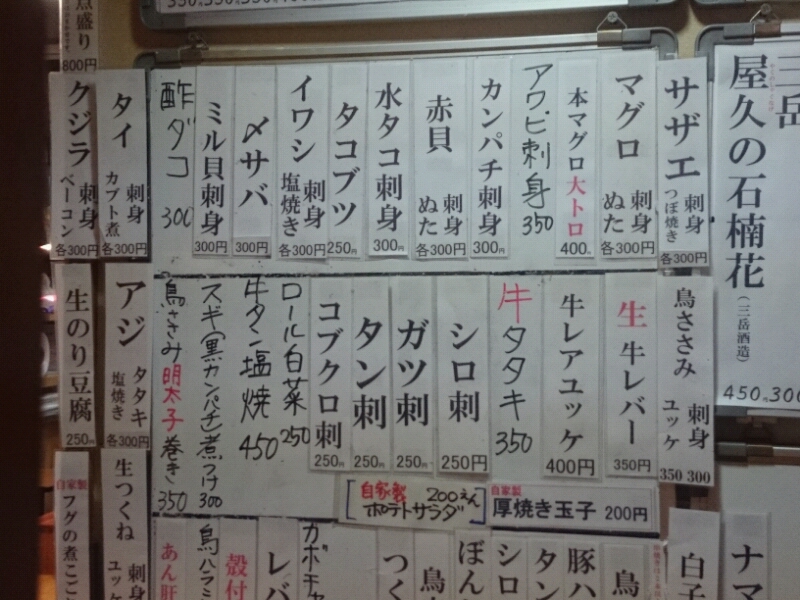 三岳
屋久の石楠花
(三岳酒造)
450 300
サザエ 刺身 つぼ焼き 各300円
マグロ 刺身 ぬた 各300円
本マグロ大トロ 400円
アワビ刺身 350
カンパチ刺身 300円
赤貝 刺身 ぬた 各300円
水タコ刺身 300円
タコブツ 250円
イワシ 刺身 塩焼き 各300円
〆サバ 300円
ミル貝刺身 300円
酢ダコ 300
タイ 刺身 カブト煮 各300円
クジラ 刺身 ベーコン 各300円
800円
鳥ささみ 刺身 ユッケ 350 300
生牛レバー 350円
牛レアユッケ 400円
牛タタキ 350
シロ刺 250円
ガツ刺 250円
タン刺 250円
コブクロ刺 250円
ロール白菜 250
牛タン塩焼 450
スギ(黒カンパチ)煮つけ 300
鳥ささみ明太子巻き 350
アジ タタキ 塩焼き 各300円
生のり豆腐 250円
自家製 厚焼き玉子 200円
自家製 ポテトサラダ 200えん
ナマ
白子
鳥
豚ハ
タン
シロ
ぼん
鳥
つく
カボチャ
レバ
殻付
鳥ハラミ
あん肝
生つくね 刺身 ユッケ
自家製 フグの煮こご